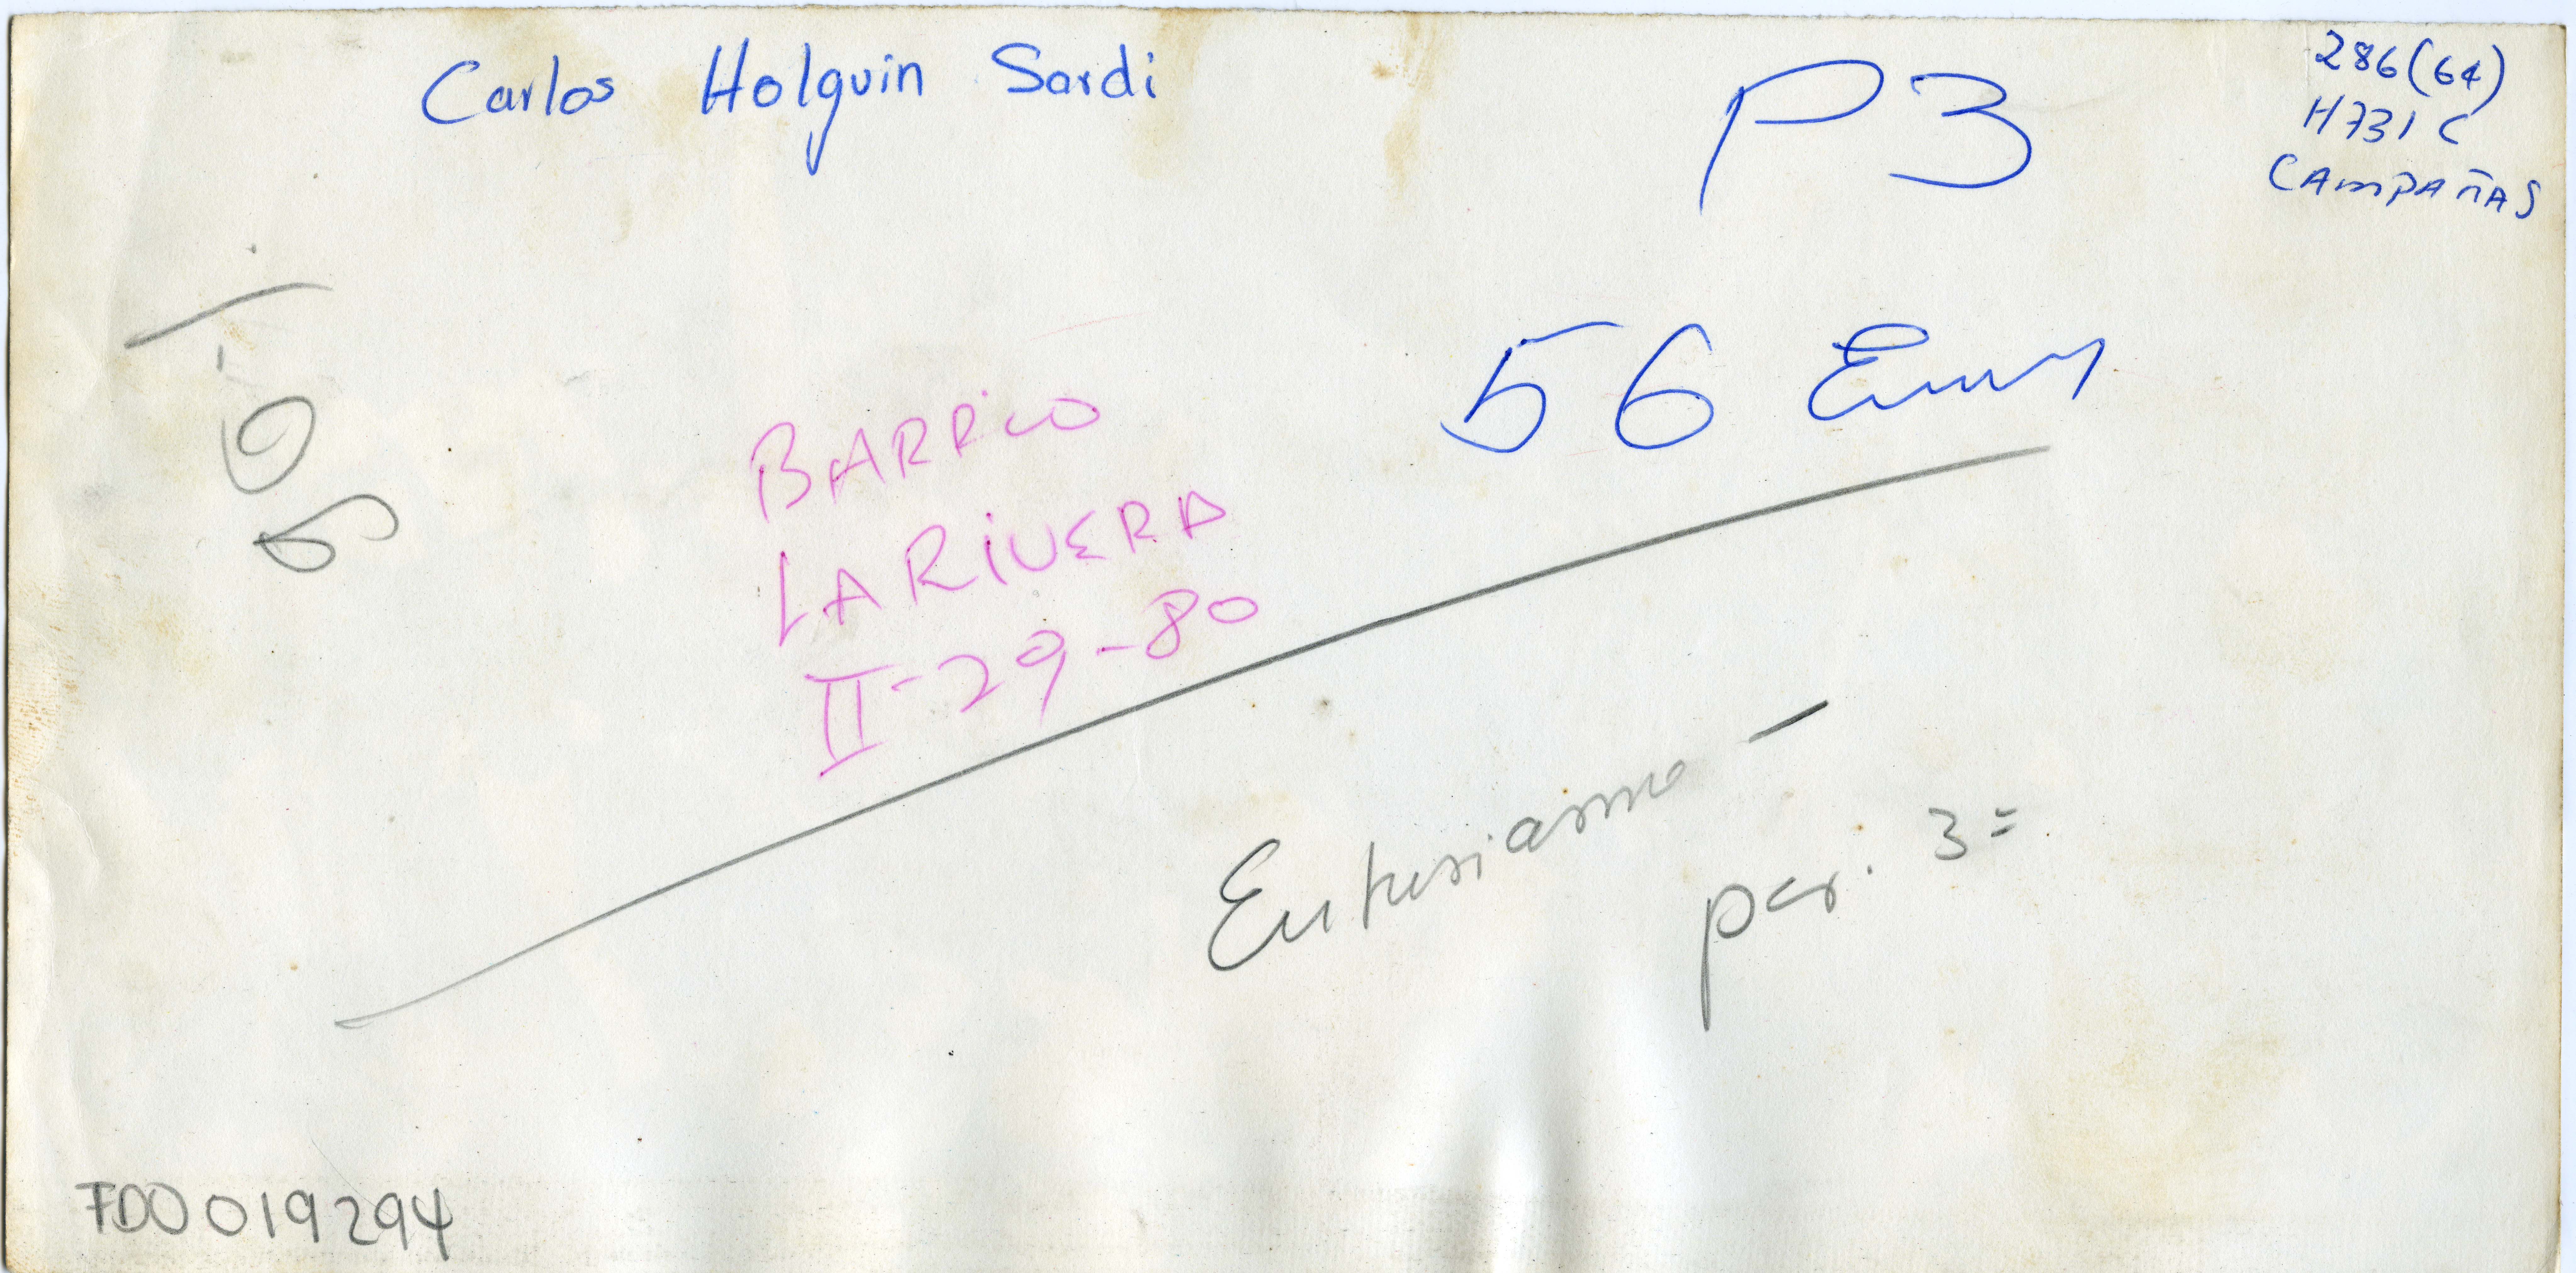 Carlos Holguin Sardi
P3
286(64)
H731C
CAMPAÑAS
56 Ems
BARRIO
LA RIVERA
II-29-80
Entusiasmo -
per. 3=
FDO019294